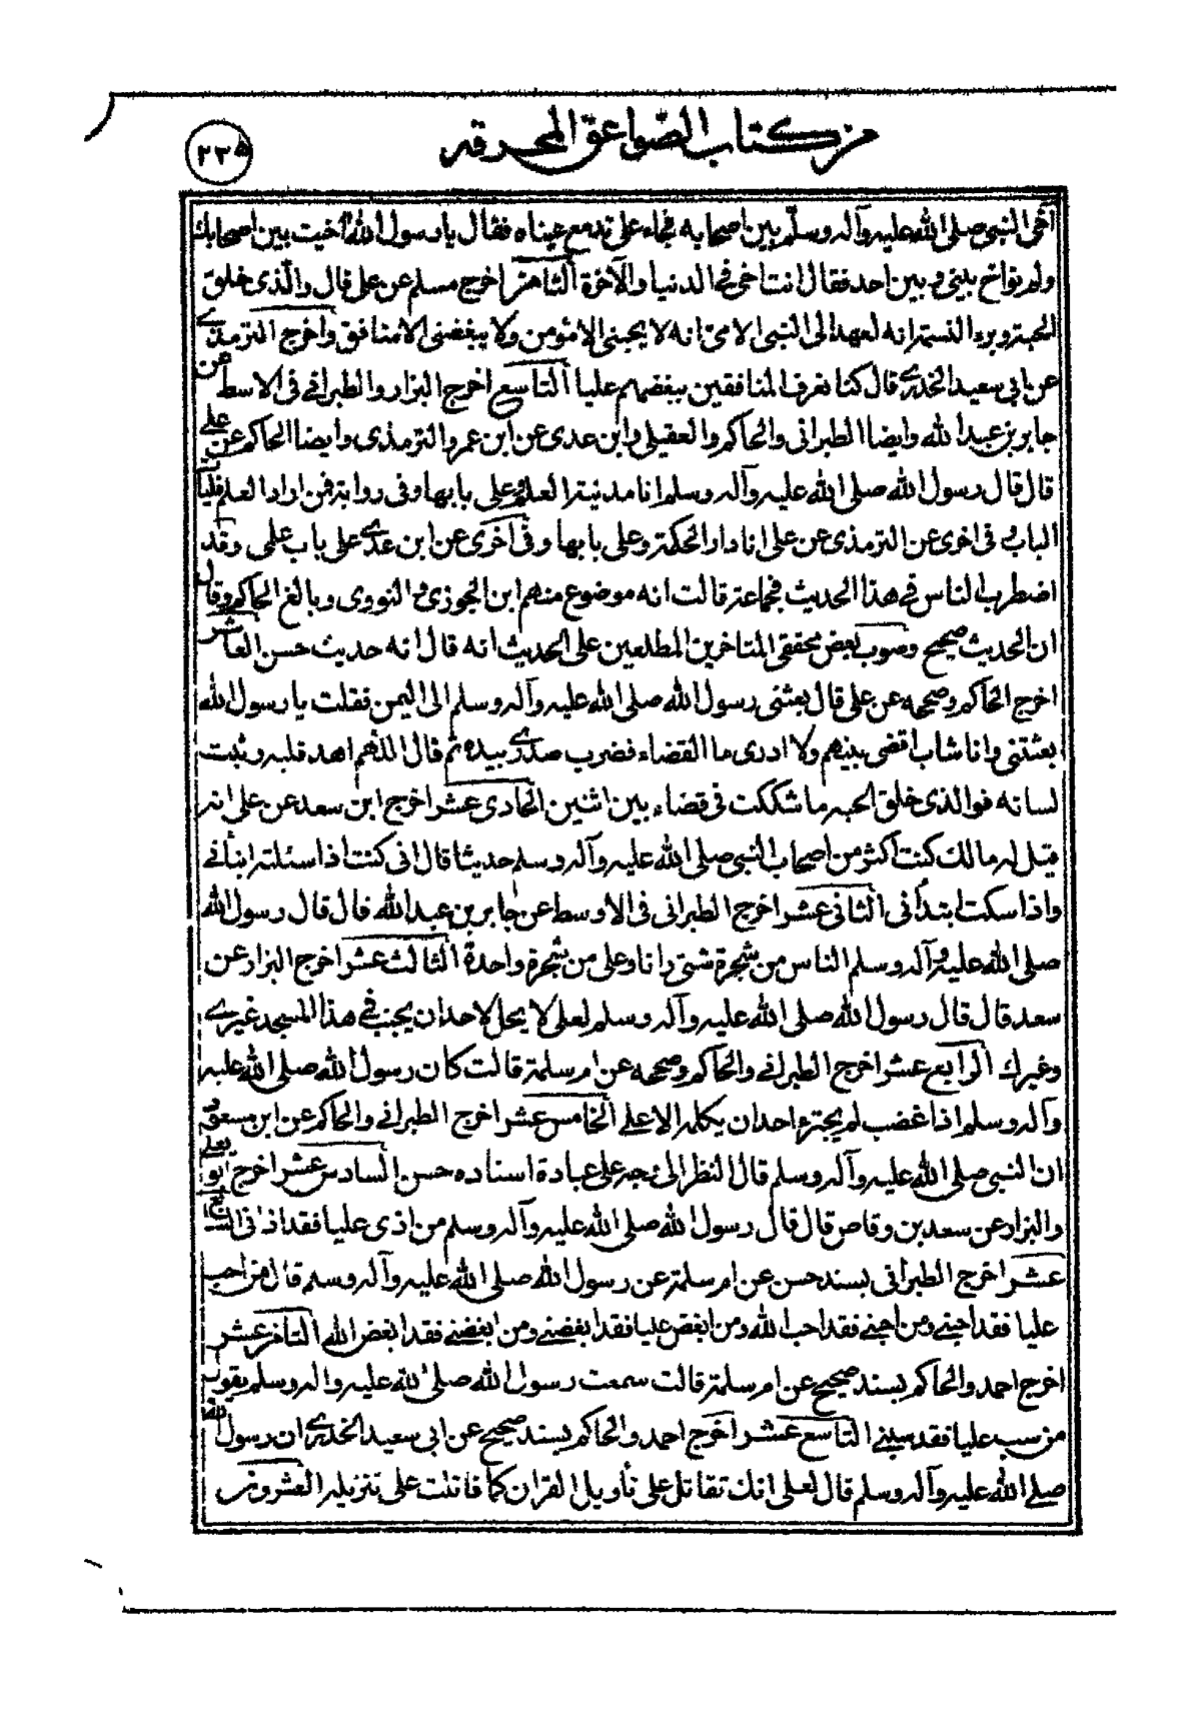 من كتاب الصواعق المحرقه
٢٣٥
آخى النبى صلى الله عليه وآله وسلم بين اصحابه فجاء على تدمع عيناه فقال يا رسول الله آخيت بين اصحابك
ولم تواخ بينى وبين احد فقال انت اخى فى الدنيا والآخرة الثامن اخرج مسلم عن على قال والذى خلق
الحبة وبرء النسمة انه لعهد الى النبى الامى انه لا يحبنى الا مؤمن ولا يبغضنى الا منافق واخرج الترمذى
عن ابى سعيد الخدرى قال كنا نعرف المنافقين ببغضهم عليا التاسع اخرج البزار والطبرانى فى الاسط عن
جابر بن عبد الله وايضا الطبرانى والحاكم والعقيلى وابن عدى عن ابن عمر والترمذى وايضا الحاكم عن على
قال قال رسول الله صلى الله عليه وآله وسلم انا مدينة العلم وعلى بابها وفى رواية فمن اراد العلم فليات
الباب وفى اخرى عن الترمذى عن على انا دار الحكمة وعلى بابها وفى اخرى عن ابن عدى على باب علمى وقد
اضطرب الناس فى هذا الحديث فجماعة قالت انه موضوع منهم ابن الجوزى والنووى وبالغ الحاكم وقال
ان الحديث صحيح وصوب بعض محققى المتاخرين المطلعين على الحديث انه قال انه حديث حسن العاشر
اخرج الحاكم وصححه عن على قال بعثنى رسول الله صلى الله عليه وآله وسلم الى اليمن فقلت يا رسول الله
بعثتنى وانا شاب اقضى بينهم ولا ادرى ما القضاء فضرب صدرى بيده ثم قال اللهم اهد قلبه وثبت
لسانه فوالذى خلق الحبه ما شككت فى قضاء بين اثنين الحادى عشر اخرج ابن سعد عن على انه
قيل له مالك كنت اكثر من اصحاب النبى صلى الله عليه وآله وسلم حديثا قال انى كنت اذا سئلته انبأنى
واذا سكت ابتدأنى الثانى عشر اخرج الطبرانى فى الاوسط عن جابر بن عبد الله قال قال رسول الله
صلى الله عليه وآله وسلم الناس من شجرة شتى وانا وعلى من شجرة واحدة الثالث عشر اخرج البزار عن
سعد قال قال رسول الله صلى الله عليه وآله وسلم لعلى لا يحل لاحد ان يجنب فى هذا المسجد غيرى
وغيرك الرابع عشر اخرج الطبرانى والحاكم وصححه عن ام سلمة قالت كان رسول الله صلى الله عليه
وآله وسلم اذا غضب لم يجترء احد ان يكلمه الا على الخامس عشر اخرج الطبرانى والحاكم عن ابن مسعود
ان النبى صلى الله عليه وآله وسلم قال النظر الى وجه على عبادة اسناده حسن السادس عشر اخرج ابو يعلى
والبزار عن سعد بن وقاص قال قال رسول الله صلى الله عليه وآله وسلم من اذى عليا فقد اذانى السابع
عشر اخرج الطبرانى بسند حسن عن ام سلمة عن رسول الله صلى الله عليه وآله وسلم قال من احب
عليا فقد احبنى ومن احبنى فقد احب الله ومن ابغض عليا فقد ابغضنى ومن ابغضنى فقد ابغض الله الثامن عشر
اخرج احمد والحاكم بسند صحيح عن ام سلمة قالت سمعت رسول الله صلى الله عليه واله وسلم يقول
من سب عليا فقد سبنى التاسع عشر اخرج احمد والحاكم بسند صحيح عن ابى سعيد الخدرى ان رسول الله
صلى الله عليه وآله وسلم قال لعلى انك تقاتل على تأويل القران كما قاتلت على تنزيله العشرون